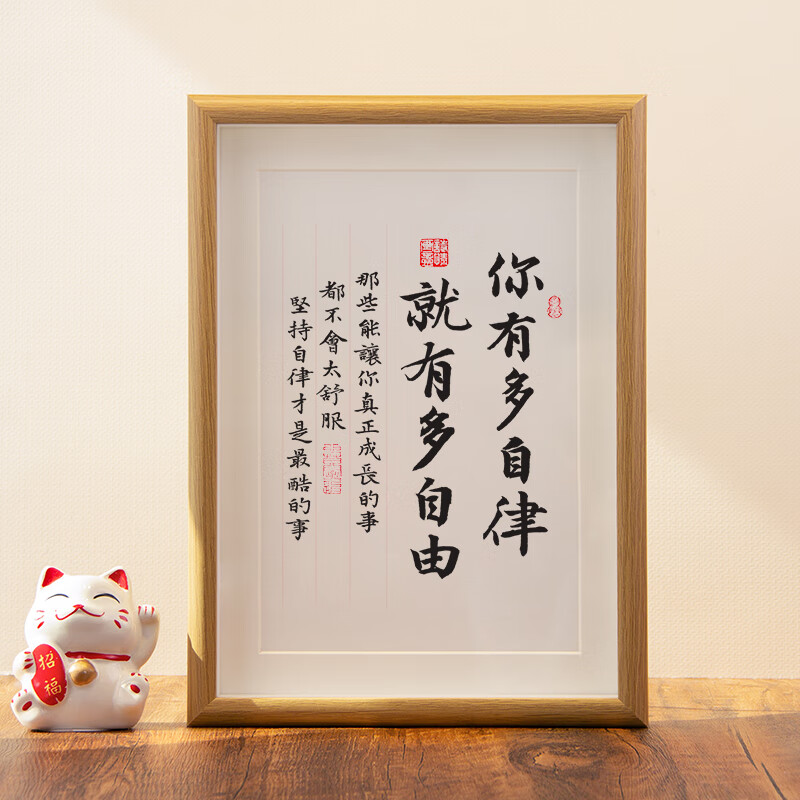 你有多自律
就有多自由
那些能讓你真正成長的事
都不會太舒服
堅持自律才是最酷的事
招福